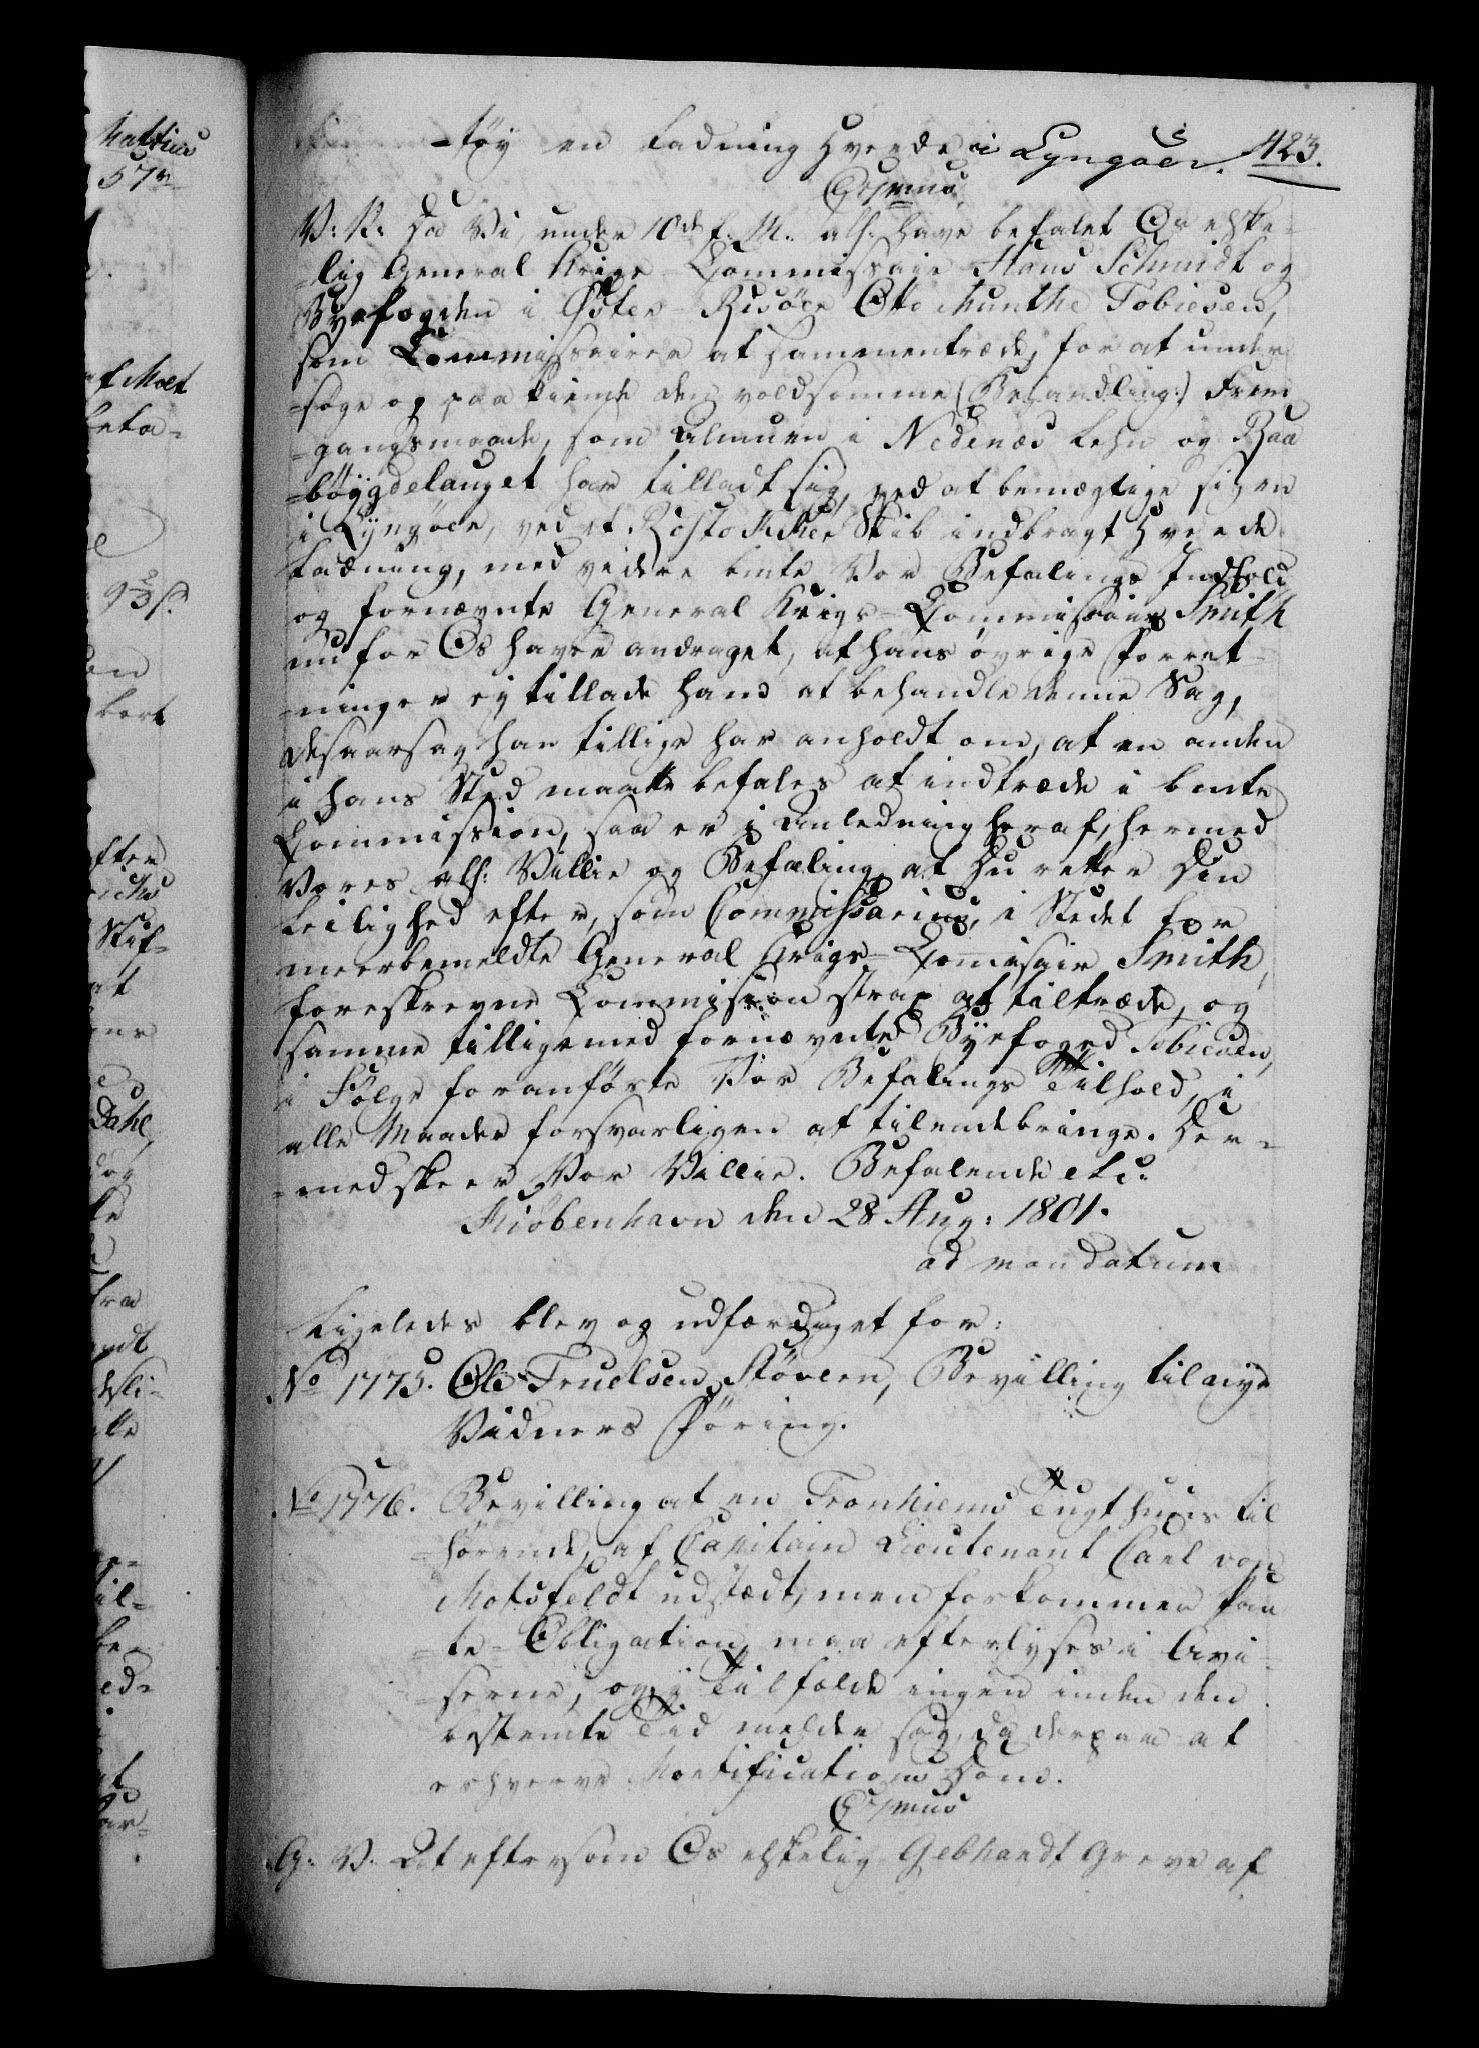 -tøy en Ladning Hvede i Lyngøer. 423.
C7mus.
V: V: Da Vi, under 10de f: M: alh: have befalet Os elske-
-lig General Krigs-Commissair Hans Schmidt og
Byefogden i Øster-Riisöer Otto Munthe Tobiesen,
som Commissairer at sammentræde, for at under
-søge og paakiende den voldsomme (Behandling:) Frem
-gangsmaade, som Almuen i Nedenæs Lehn og Raa
-böygdelauget har tilladt sig, ved at bemægtige sig en
i Lyngöer, ved et Rostokker Skib indbragt Hvede
Ladning, med videre bemte Vor Befalings Indhold,
og fornævnte General Krigs-Commissair Smith
nu for Os haver andraget, at hans övrige Forret-
-ninger ey tillade ham at behandle denne Sag,
desaarsag han tillige har anholdt om, at en anden
i hans Sted maatte befales at indtræde i bemte
Commission, saa er i Anledning heraf, hermed
Vores alh: Villie og Befaling, at Du retter Din
Leilighed efter, som Commissarius, i Stedet for
meerbemeldte General Krigs-Commissair Smith,
foreskrevne Commission strax at tiltræde, og
samme tilligemed fornævnte Byefoged Tobiesen,
i Fölge foranførte Vor Befalings Tilhold, i
alle Maader forsvarligen at tilendebringe. Der-
-med skeer Vor Villie. Befalende etc:
Kiöbenhavn den 28 Aug: 1801.
ad mandatum
Ligeledes blev og udfærdiget for:
No 1775. Ole Truelsen Stöveren, Bevilling til nye
Vidners Föring.
No 1776. Bevilling at en Tronhiems Tugthuus til
-hørende, af Capitain Lieutenant Carl von
Motzfeldt udstædt, men forkommen Pan
-te-Obligation, maa efterlyses i Avi-
-serne, og i Tilfælde ingen inden den
bestemte Tid melder sig, da derpaa at
erhverve Mortifications Dom.
C7mus
G: V. At eftersom Os elskelig Gebhardt Greve af